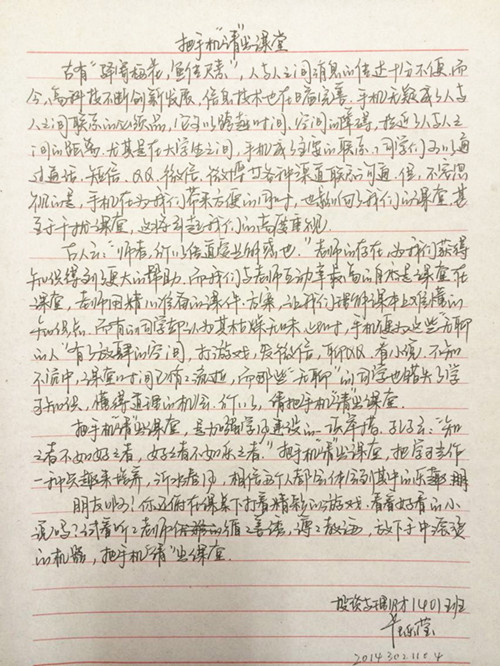 把手机“请”出课堂
古有“驿寄梅花，鱼传尺素”，人与人之间消息的传递十分不便，而
今，高科技不断创新发展，信息技术也在日病完善，手机无疑成了人与
人之间联系的必须品，它可以跨越时间、空间的障碍，拉近了人与人之
间的距离。尤其是在大学生之间，手机成了主要的联系，同学们可以通
过通话、短信、QQ、微信、微博等各种渠道联系沟通。但，不容忽
视的是，手机在为我们带来方便的同时，也影响了我们的课堂，甚
至于干扰课堂，这将引起我们的高度重视。
古人云：“师者，所以传道受业解惑也。”老师的存在，为我们获得
知识得到了更大的帮助。而我们与老师互动率最高的自然是课堂。在
课堂，老师用精心准备的课件、方案，让我们理解课本上难懂的
知识点。而有的同学却认为其枯燥无味，此时，手机便为这些“无聊
的人”有了放肆的空间，打游戏，发微信，聊QQ，看小说，不知
不觉中，课堂时间已悄之流逝，而那些“无聊”的同学也错失了学
习知识，懂得道理的机会。所以，请把手机“请”出课堂。
把手机“请”出课堂，是加强学风建设的一项举措。孔子云：“知
之者不如好之者，好之者不如乐之者。”把手机“请”出课堂，把学习当作
一种兴趣来培养，沂水春风，相信每个人都会体会到其中的乐趣。
朋友呀！你还俯在课桌下打着精彩的游戏，看着好看的小
说吗？试着听之老师的循之善诱，谆之教诲，放下手中滚烫
的机器，把手机“请”出课堂。
投资与理财1401班
2014302110